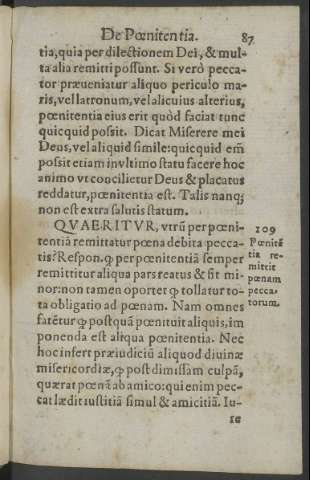 De Pœnitentia. 87
tia, quia per dilectionem Dei, & mul-
ta alia remitti possunt. Si verò pecca-
tor præueniatur aliquo periculo ma-
ris, vel latronum, vel alicuius alterius,
pœnitentia eius erit quòd faciat tunc
quicquid possit. Dicat Miserere mei
Deus, vel aliquid simile: quicquid em̃
possit etiam in vltimo statu facere hoc
animo vt concilietur Deus & placatus
reddatur, pœnitentia est. Talis nanq;
non est extra salutis statum.
QVAERITVR, vtrũ per pœni-
tentiã remittatur pœna debita pecca-
tis? Respon. ꝙ per pœnitentiã semper
remittitur aliqua pars reatus & fit mi-
nor: non tamen oportet ꝙ tollatur to-
ta obligatio ad pœnam. Nam omnes
fatẽtur ꝙ postquã pœnituit aliquis, im
ponenda est aliqua pœnitentia. Nec
hoc infert præiudiciũ aliquod diuinæ
misericordiæ, ꝙ post dimissam culpã,
quærat pœnã ab amico: qui enim pec-
cat lædit iustitiã simul & amicitiã. Iu-
re
109
Pœnitẽ
tia re-
mittit
pœnam
pecca-
torum.